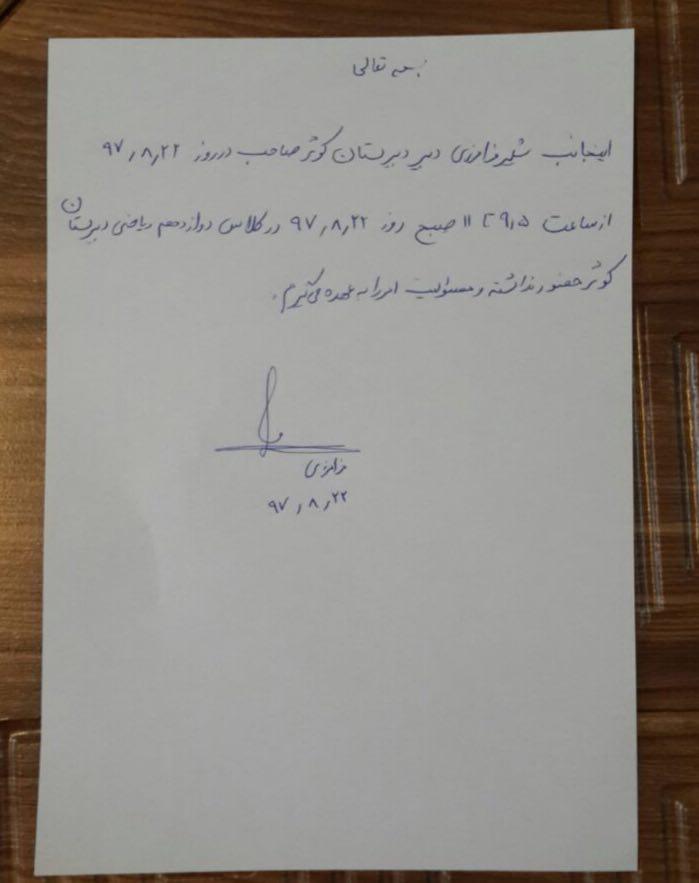 بسمه تعالی
اینجانب فرامرزی دبیر دبیرستان کوثر صاحب در روز ۹۷/۸/۲۲
از ساعت ۹/۵ تا ۱۱ صبح روز ۹۷/۸/۲۲ در کلاس دوازدهم ریاضی دبیرستان
کوثر حضور نداشته و مسئولیت امر را به عهده می‌گیرم.
فرامرزی
۹۷/۸/۲۲